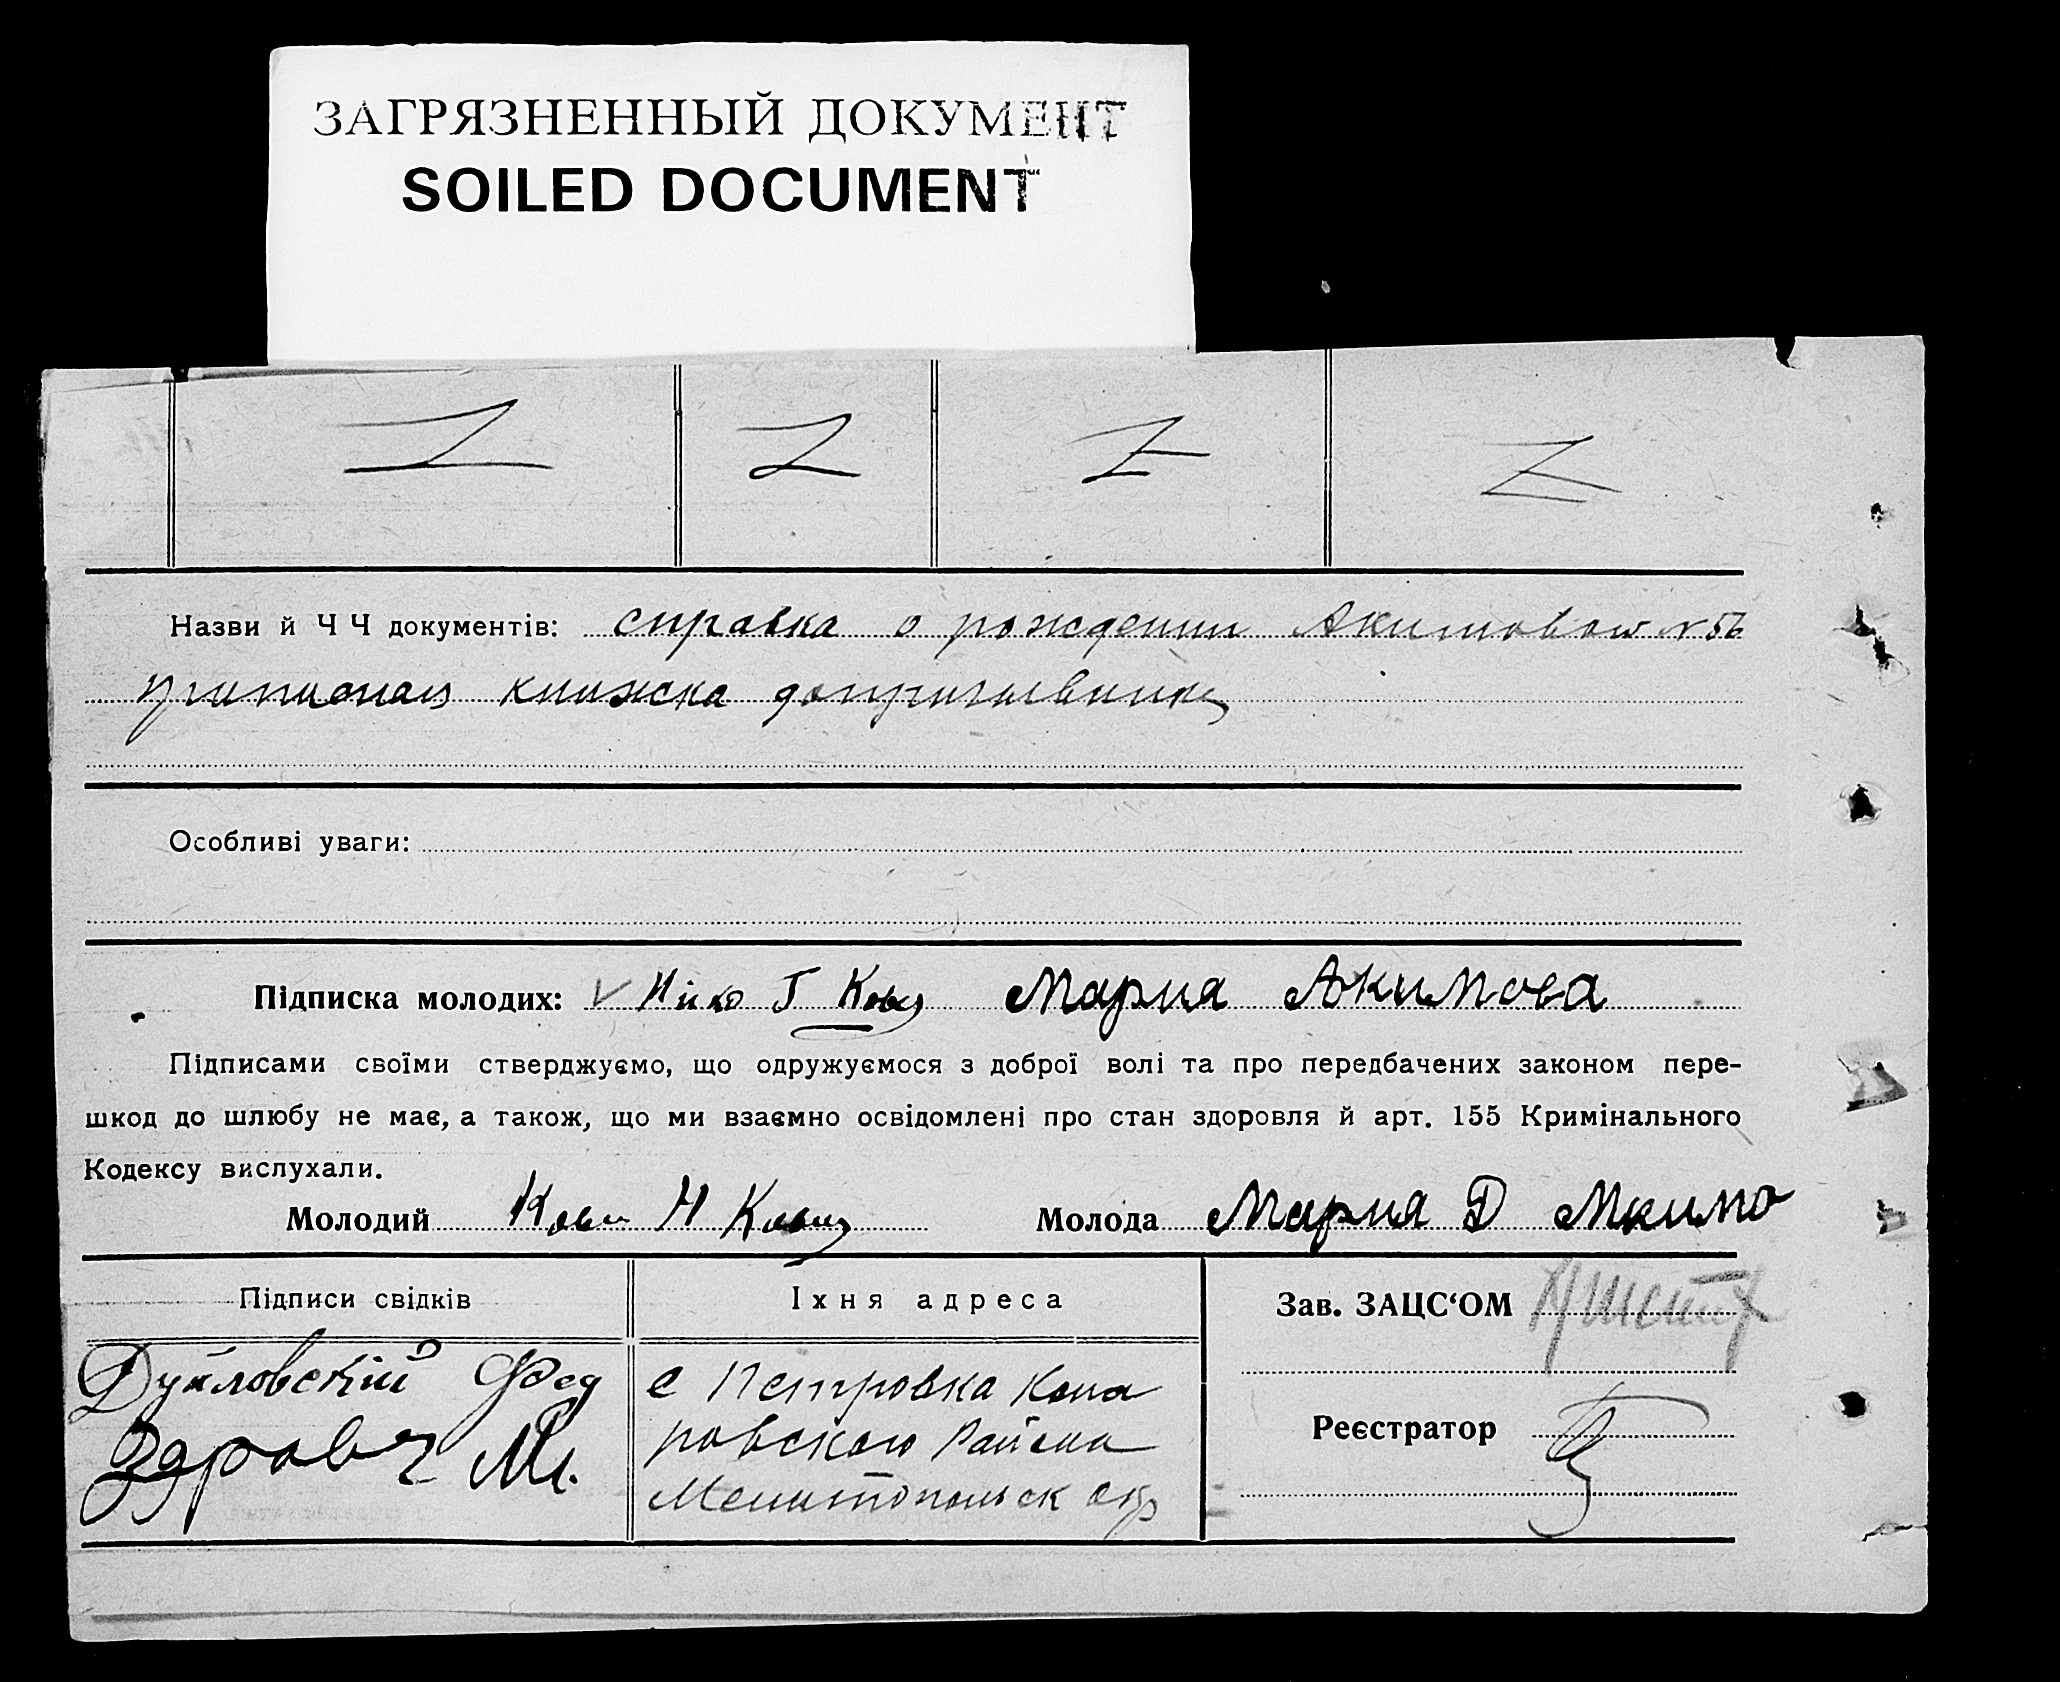 ЗАГРЯЗНЕННЫЙ ДОКУМЕНТ
SOILED DOCUMENT
Z Z Z Z
Назви й Ч Ч документів: справка о рождении Акимовой № 56
книжка допризывника
Особливі уваги:
Підписка молодих: Мария Акимова
Підписами своїми стверджуємо, що одружуємося з доброї волі та про передбачених законом пере-
шкод до шлюбу не має, а також, що ми взаємно освідомлені про стан здоровля й арт. 155 Кримінального
Кодексу вислухали.
Молодий Молода Мария Д Акимо
Підписи свідків Їхня адреса Зав. ЗАЦС‘ОМ
Фед с Петровка Кома
ровского Района Реєстратор
Мелитопольск окр